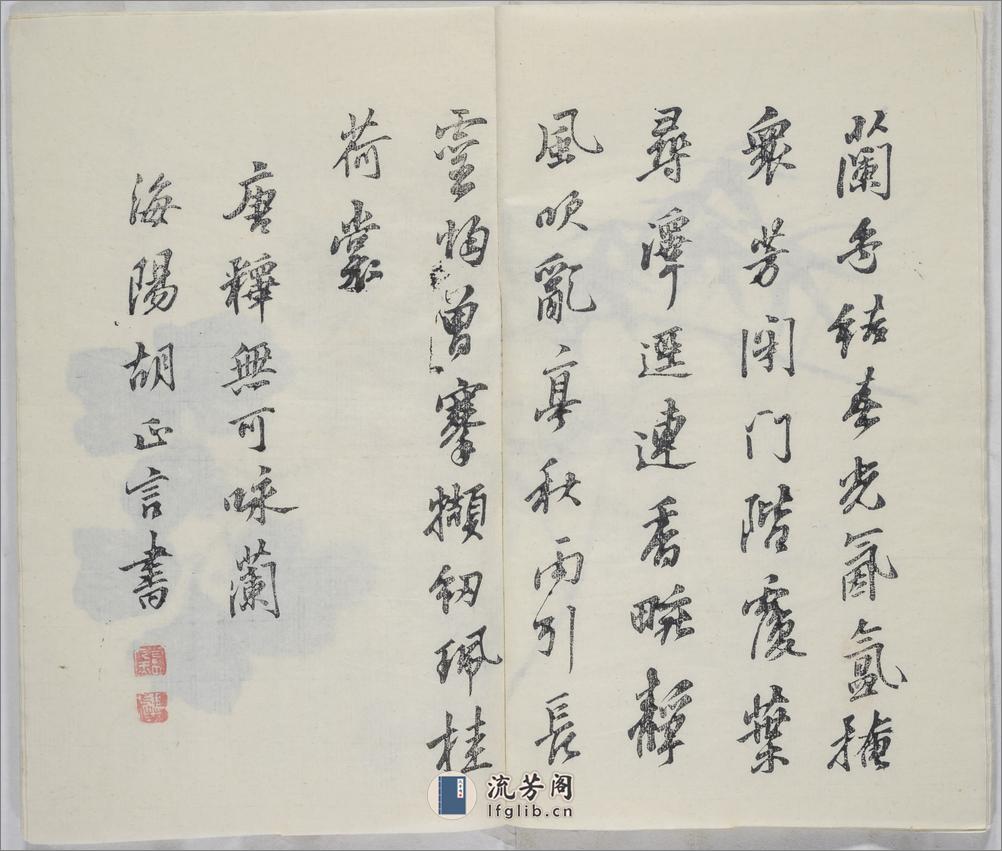 蘭色結春光氤氳掩
衆芳閉門階覆葉
尋澤逕連香畹靜
風吹亂亭秋雨引長
靈均曾搴擷紉珮桂
荷裳
唐釋無可咏蘭
海陽胡正言書
流芳阁
lfglib.cn